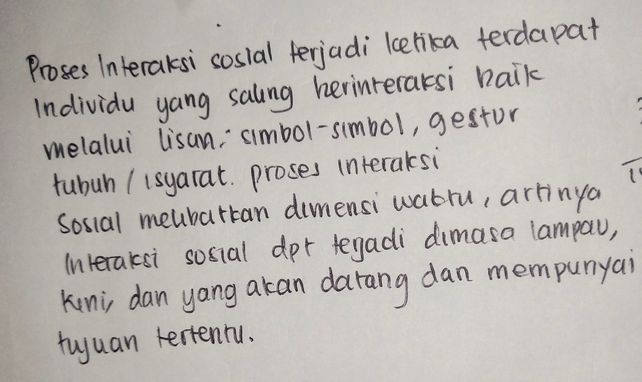 Proses Interaksi sosial terjadi ketika terdapat
Individu yang saling berinteraksi baik
melalui lisan, simbol-simbol, gestur
tubuh / isyarat. proses interaksi
Sosial melibatkan dimensi waktu, artinya
Interaksi sosial dpt terjadi dimasa lampau,
kini, dan yang akan datang dan mempunyai
tujuan tertentu.